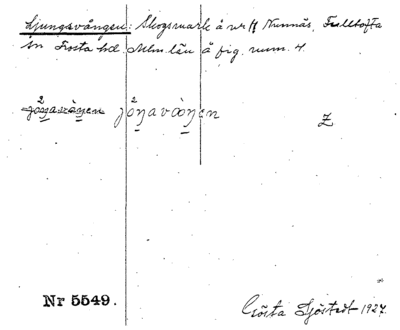 Ljungsvången: Skogsmark å nr 11 Nunnäs, Fulltofta
sn Frosta hd. Mlm. län å fig. num. 4.
jöŋavàŋen Z
Nr 5549.
Gösta Sjöstedt 1927.